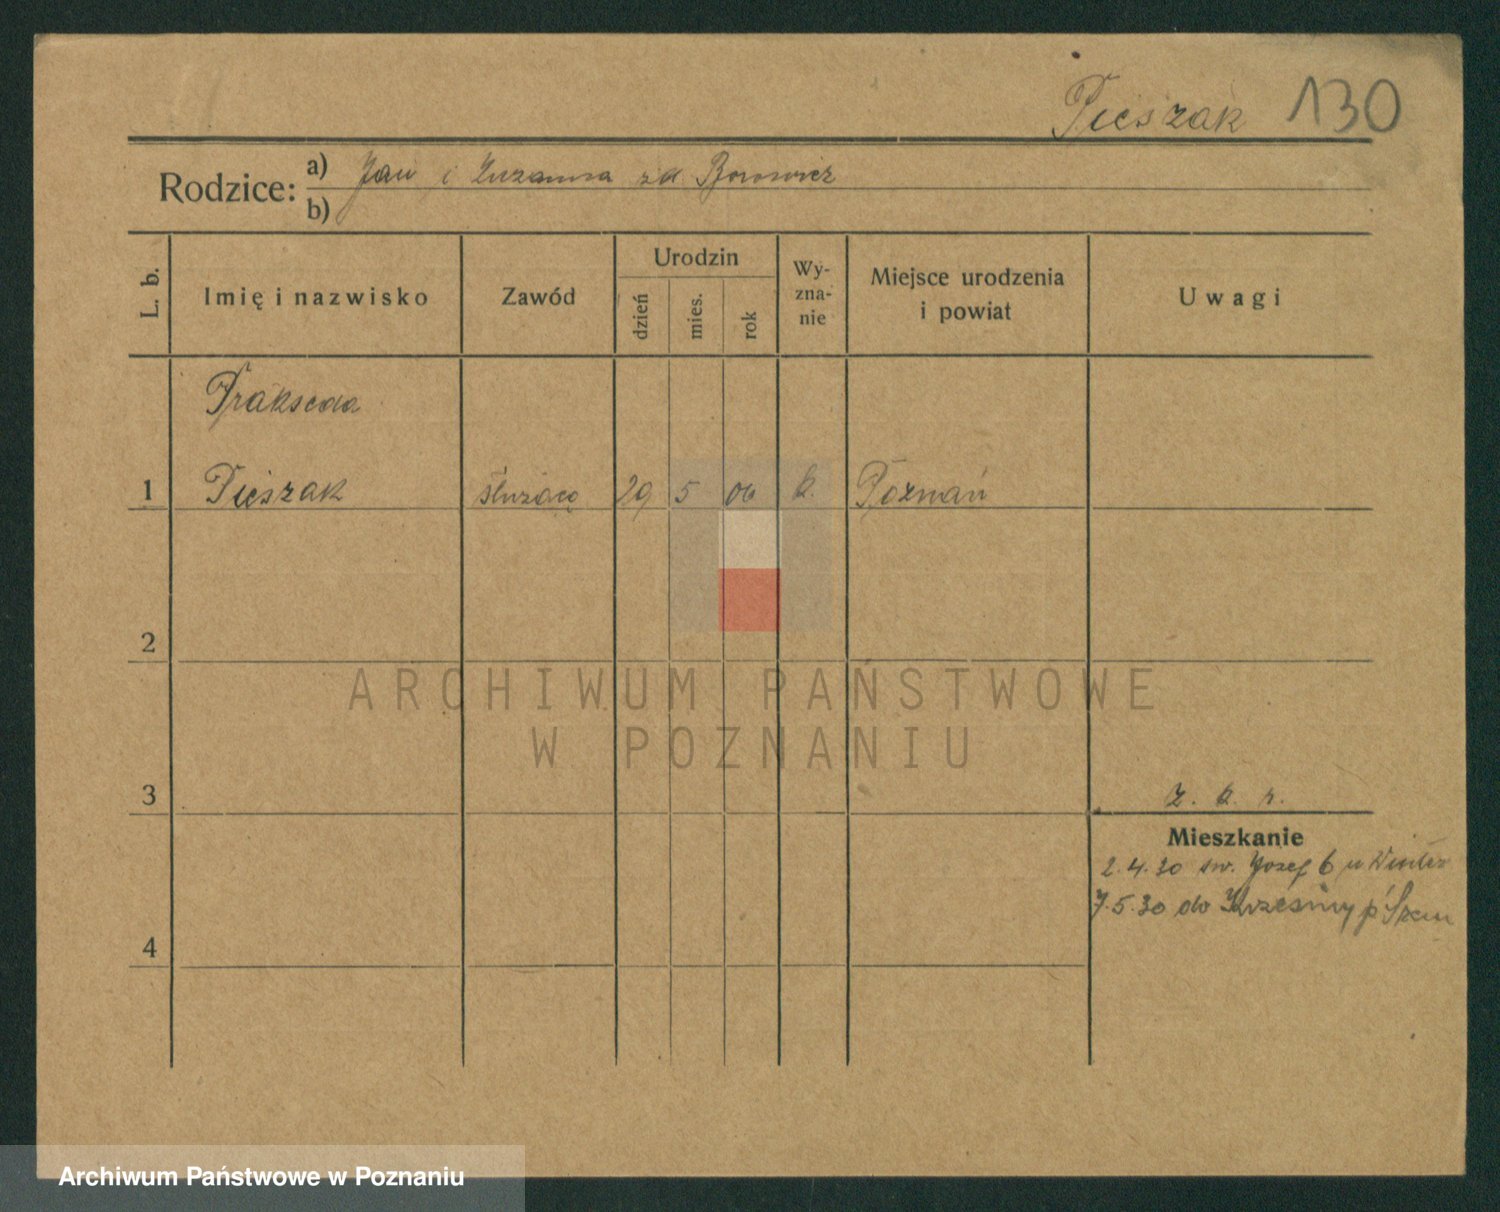 Pieszak 130
Rodzice: a) Jan i Zuzanna zd. Borowicz
b)
L. b. Imię i nazwisko Zawód Urodzin dzień mies. rok Wy-zna-nie Miejsce urodzenia i powiat Uwagi
Prakseda
1 Pieszak służąca 29 5 06 k. Poznań
2
ARCHIWUM PAŃSTWOWE
W POZNANIU
3 z. k. r.
Mieszkanie
2.4.30 św. Józef 6 u Winter
7.5.30 do p
4
Archiwum Państwowe w Poznaniu